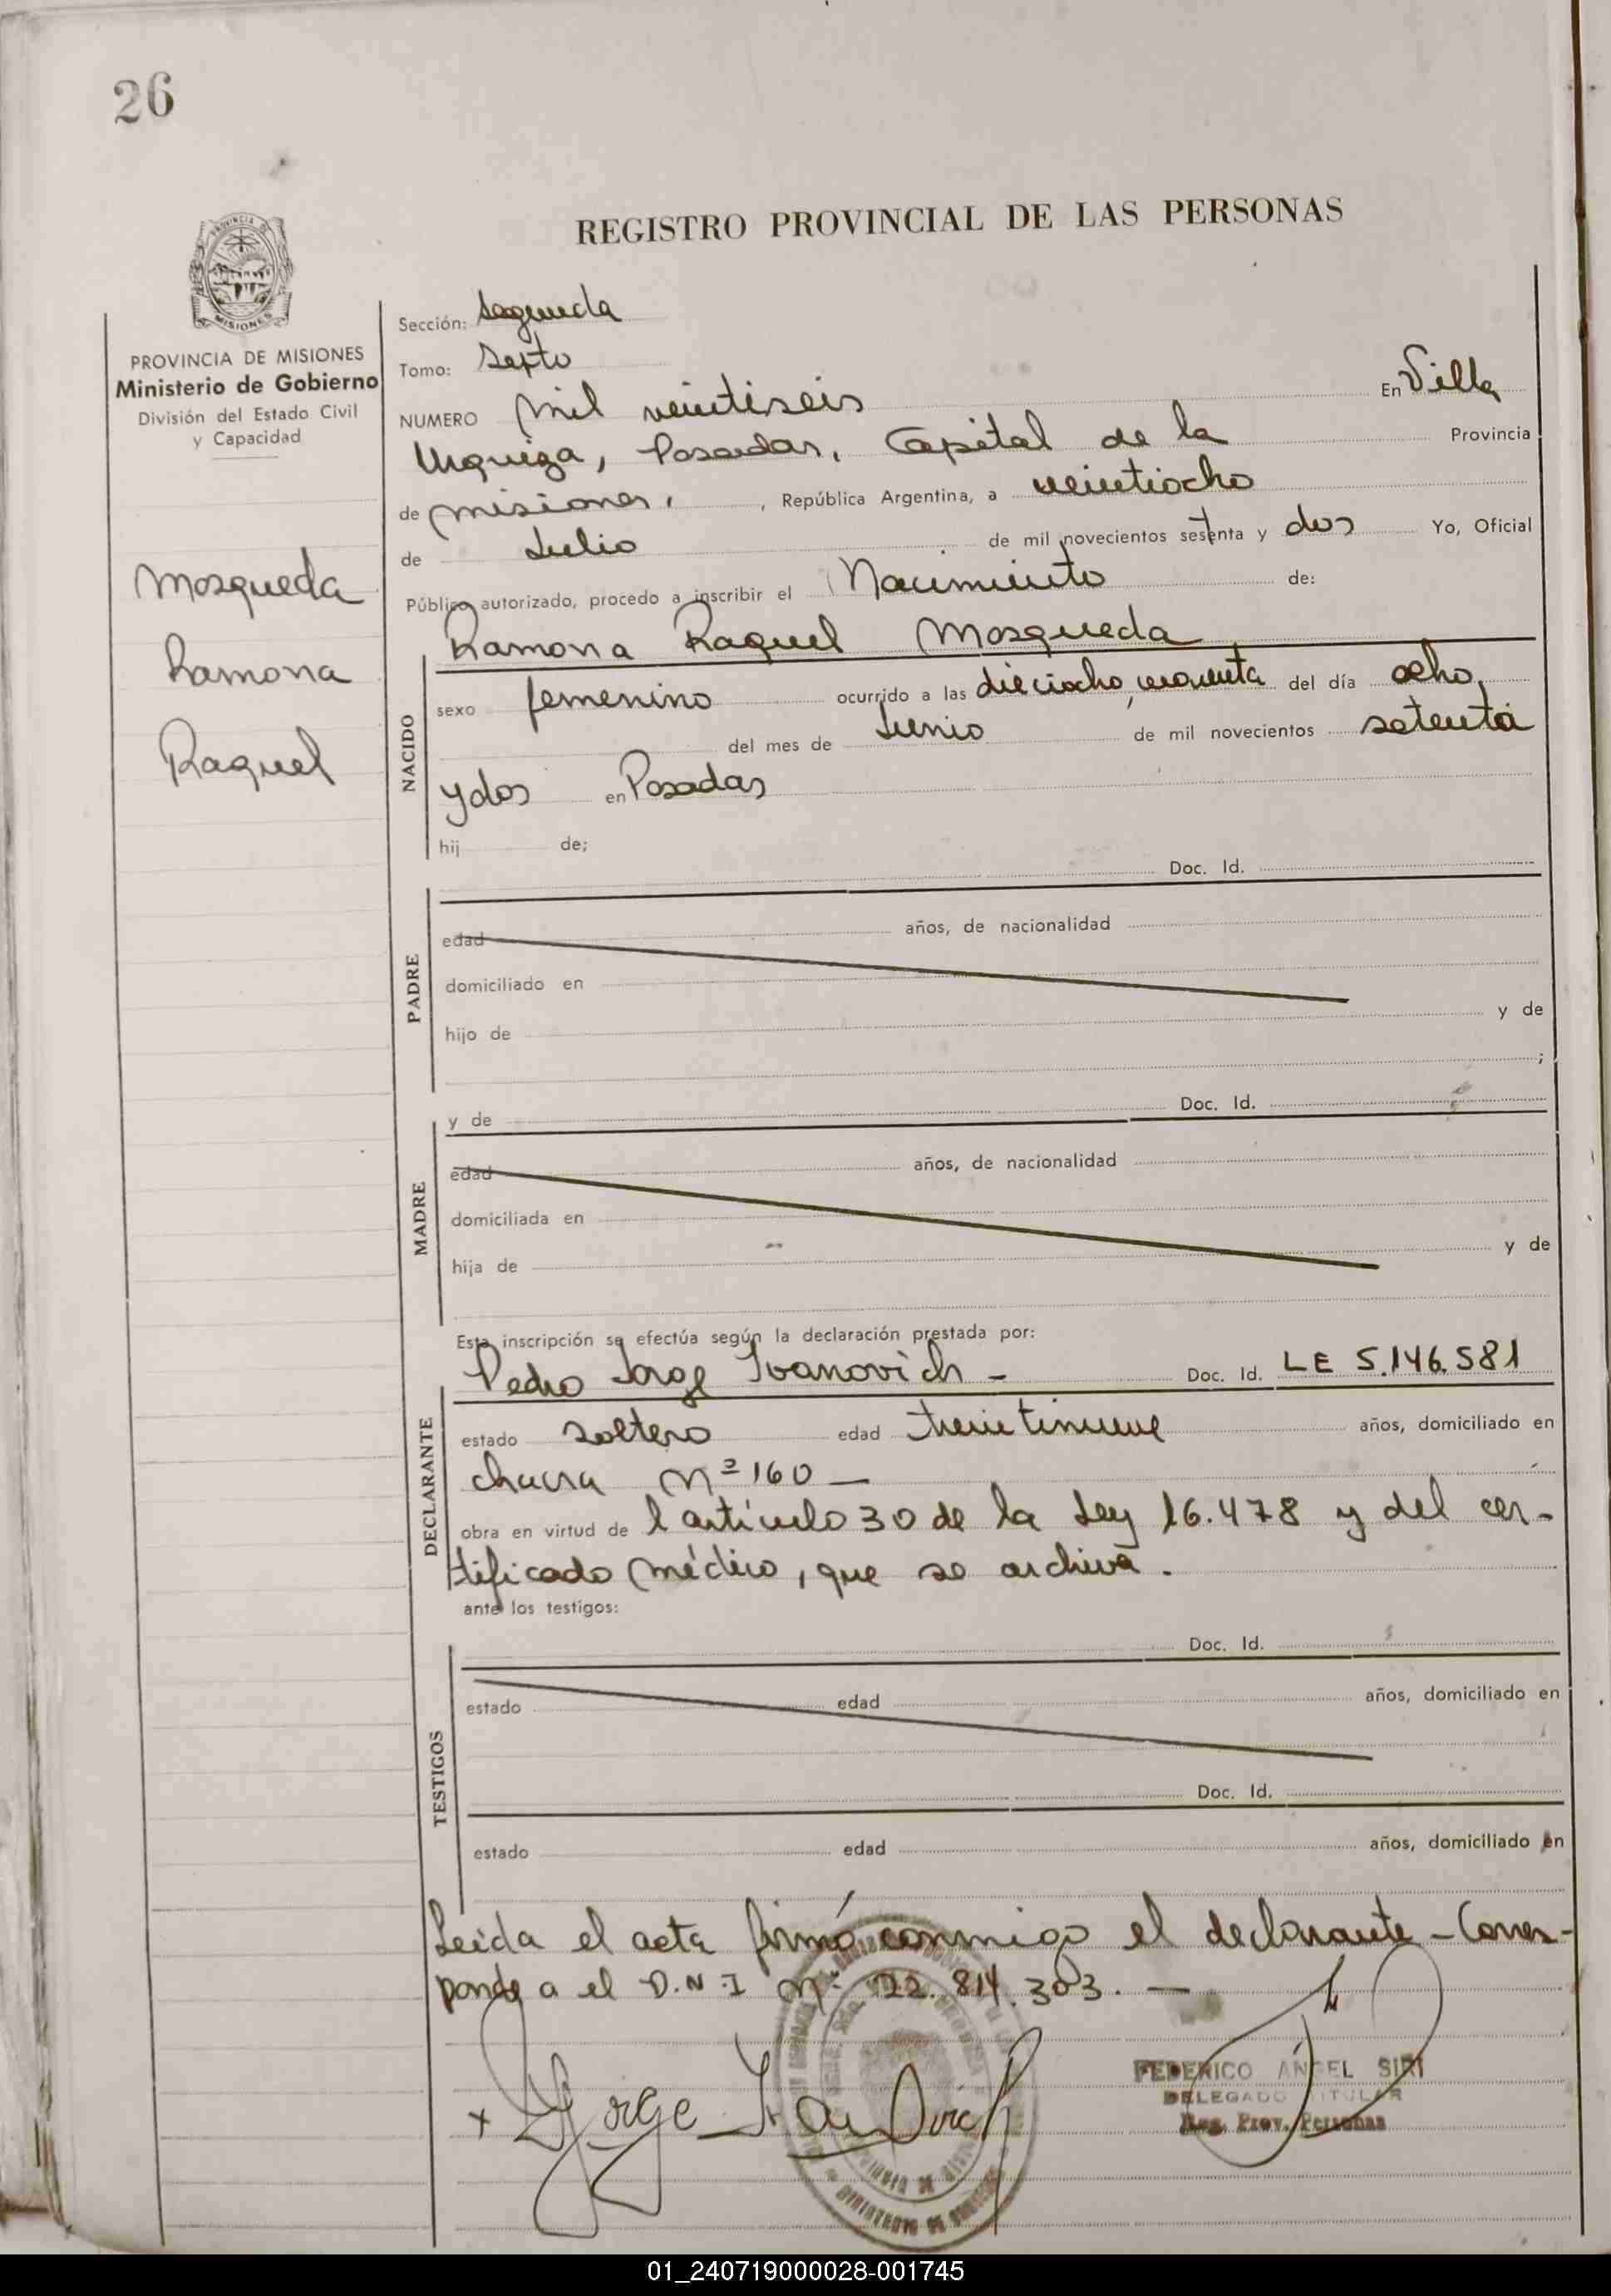 26
REGISTRO PROVINCIAL DE LAS PERSONAS
PROVINCIA DE MISIONES
Ministerio de Gobierno
División del Estado Civil
y Capacidad
Mosqueda
Ramona
Raquel
Sección: Segunda
Tomo: Septo
NUMERO Mil veintiseis En Villa
Urquiza, Posadas, Capital de la Provincia
de Misiones, , República Argentina, a veintiocho
de Julio de mil novecientos setenta y dos Yo, Oficial
Público autorizado, procedo a inscribir el Nacimiento de:
Ramona Raquel Mosqueda
NACIDO
sexo femenino ocurrido a las dieciocho, cuarenta del día ocho,
del mes de Junio de mil novecientos setenta
y dos en Posadas
hij de;
Doc. Id.
PADRE
edad años, de nacionalidad
domiciliado en
hijo de y de
;
y de Doc. Id.
MADRE
edad años, de nacionalidad
domiciliada en
hija de y de
Esta inscripción se efectúa según la declaración prestada por:
Pedro Jorge Ivanovich - Doc. Id. LE 5.146.581
DECLARANTE
estado soltero edad treintinueve años, domiciliado en
chacra Nº 160 -
obra en virtud de l artículo 30 de la Ley 16.478 y del cer-
tificado médico, que se archiva.
ante los testigos:
Doc. Id.
TESTIGOS
estado edad años, domiciliado en
Doc. Id.
estado edad años, domiciliado en
Leída el acta firmó conmigo el declarante - Corres-
ponde a el D.N.I Nº 22.814.303. -
x Jorge Ivanovich
FEDERICO ANGEL SIRI
DELEGADO TITULAR
Reg. Prov. Personas
01_240719000028-001745